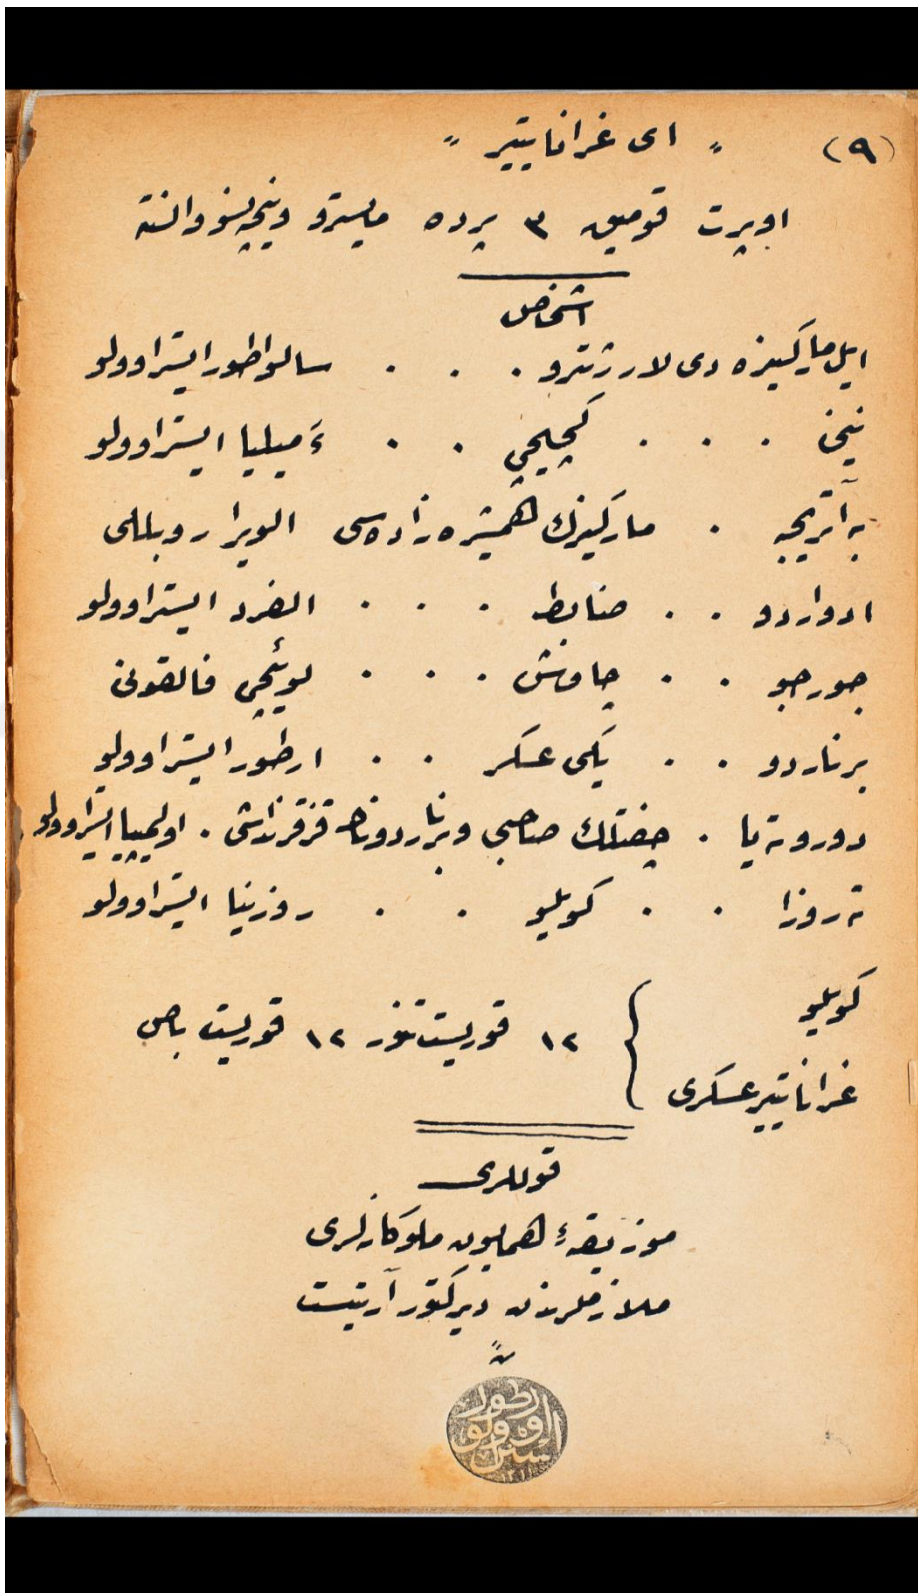 (٩) " ای غراناتییر "
اوپرت قومیق ٣ پرده مایسترو وینچنسو والنته
اشخاص
ایل مارکیزه دی لارژنترو . . . سالواطور ایستراوولو
نینی . . . کچیجی . . ءَمیلیا ایستراوولو
به آتریچه . مارکیزك همشیره زاده سی الویرا روبللی
ادواردو . . ضابط . . . الفرد ایستراوولو
جورجو . . چاوش . . . لوئیجی فالقونی
برناردو . . یکی عسکر . . ارطور ایستراوولو
دوروته یا . چفتلك صاحبی وبرناردونك قزقرنداشی . اولیمپیا ایستراوولو
ته روزا . . کویلیو . . روزینا ایستراوولو
کویلیو
١٢ قوریست تنور ١٢ قوریست باص
غراناتییر عسکری
قوللری
موزیقهٔ همایون ملوکانه لری
ملازملرندن دیرکتور آرتیست
ارطور
ایستراوولو